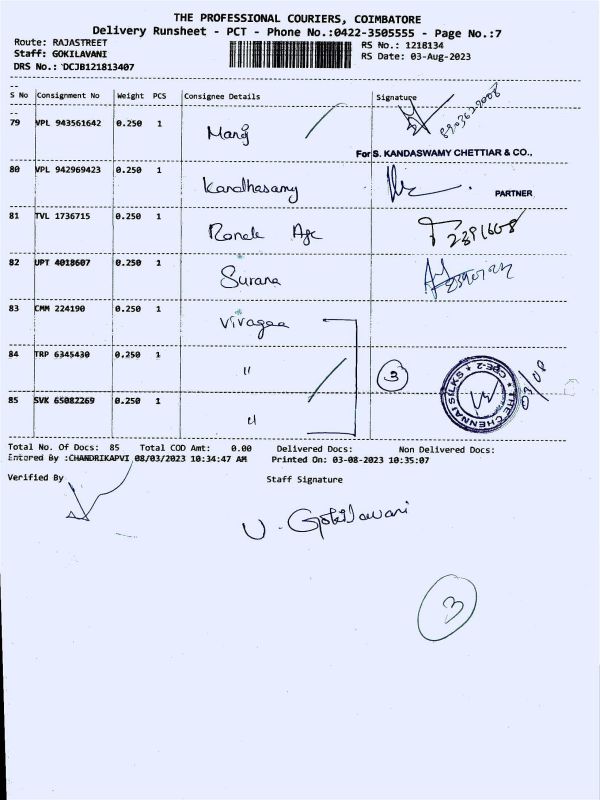 THE PROFESSIONAL COURIERS, COIMBATORE
Delivery Runsheet - PCT - Phone No.:0422-3505555 - Page No.:7
Route: RAJASTREET
RS No.: 1218134
Staff: GOKILAVANI
RS Date: 03-Aug-2023
DRS No.: DCJB121813407
S No Consignment No Weight PCS Consignee Details Signature
79 VPL 943561642 0.250 1 Manoj
For S. KANDASWAMY CHETTIAR & CO.,
80 VPL 942969423 0.250 1 Kandhasamy
PARTNER
81 TVL 1736715 0.250 1
82 UPT 4018607 0.250 1 Surana
83 CMM 224190 0.250 1 Vivagaa
84 TRP 6345430 0.250 1 "
3
THE CHENNAI SILKS * CBE-2 *
03/08
85 SVK 65082269 0.250 1 "
Total No. Of Docs: 85 Total COD Amt: 0.00 Delivered Docs: Non Delivered Docs:
Entered By :CHANDRIKAPVI 08/03/2023 10:34:47 AM Printed On: 03-08-2023 10:35:07
Verified By Staff Signature
V. Gokilavani
3